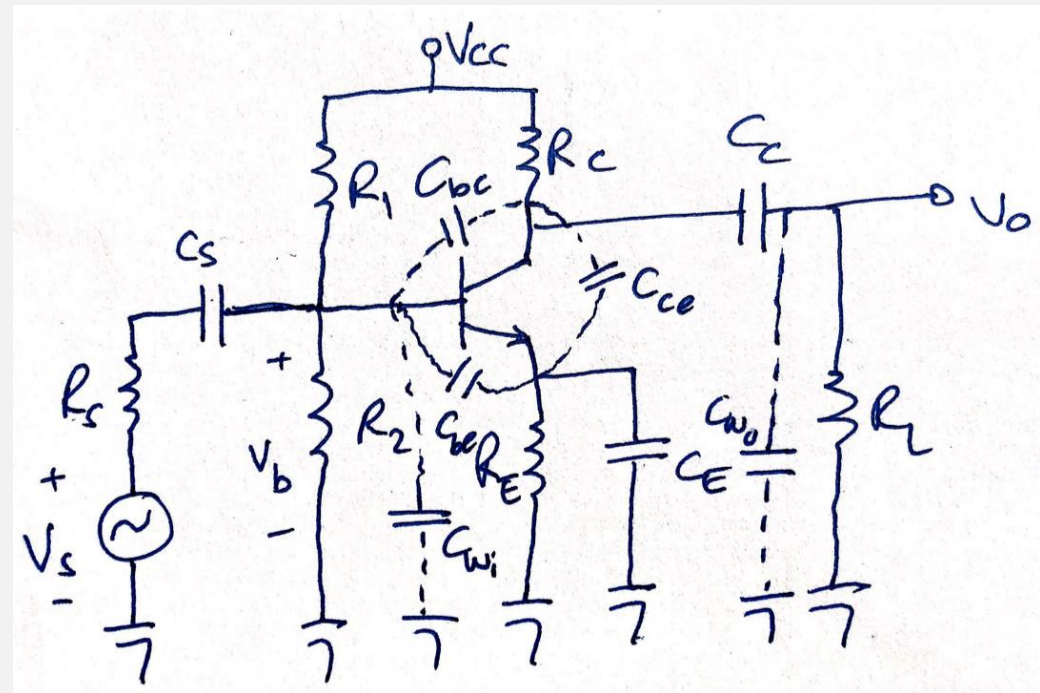 Vcc
R1
Cbc
Rc
Cc
Vo
Cs
Cce
Rs
+
Vb
-
R2
Cbe
RE
CE
Cwo
RL
Cwi
+
Vs
-